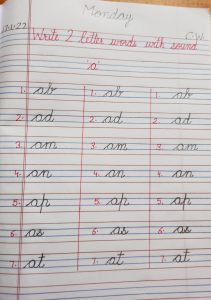 Monday
C.W.
Write 2 letter words with sound
'a'
1. ab 1. ab 1. ab
2. ad 2. ad 2. ad
3. am 3. am 3. am
4. an 4. an 4. an
5. ap 5. ap 5. ap
6. as 6. as 6. as
7. at 7. at 7. at